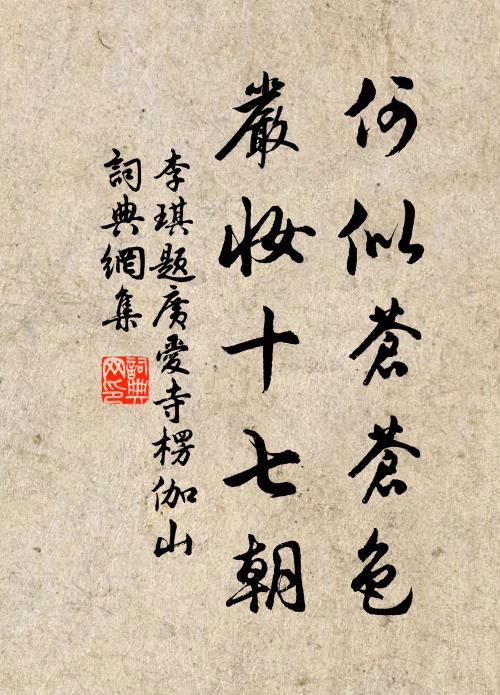 何似蒼蒼色
嚴妝十七朝
李琪題廣愛寺楞伽山
詞典網集
詞典
网印